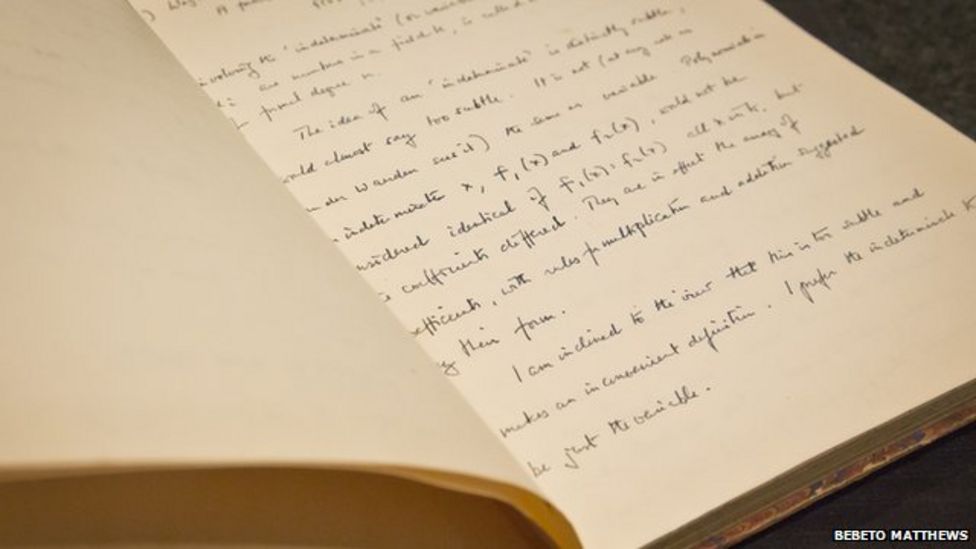 involving the 'indeterminate' (or variable
are numbers in a field k, is called a
formal degree n.
The idea of an 'indeterminate' is distinctly subtle,
would almost say too subtle. It is not (at any rate as
van der Waerden sees it) the same as variable. Polynomials in
indeterminate x, f₁(x) and f₂(x), would not be
considered identical if f₁(x) = f₂(x) all x in k, but
coefficients differed. They are in effect the array of
coefficients, with rules for multiplication and addition suggested
by their form.
I am inclined to the view that this is too subtle and
makes an inconvenient definition. I prefer the indeterminate to
be just the variable.
BEBETO MATTHEWS